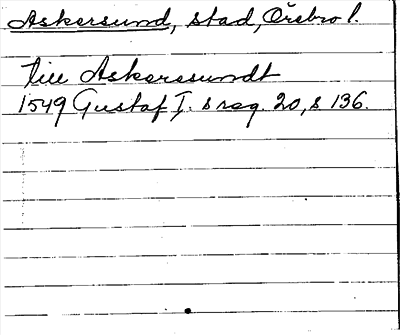 Askersund, stad, Örebro l.
till Askerssundt
1549 Gustaf I. s reg. 20, s 136.